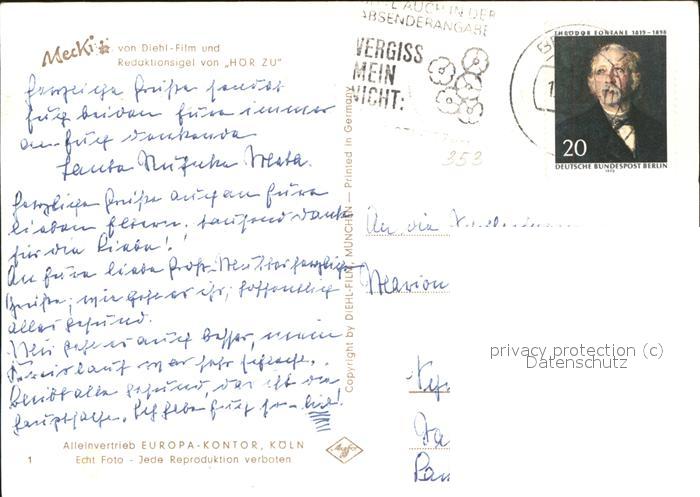 Mecki von Diehl-Film und
Redaktionsigel von "HÖR ZU"
AUCH IN DER
ABSENDERANGABE
VERGISS
MEIN
NICHT:
THEODOR FONTANE 1819-1898
20
DEUTSCHE BUNDESPOST BERLIN
1970
353
Herzliche Grüße sendet
Euch beiden Eure immer
an Euch denkende
Tante Meta.
Herzliche Grüße auch an Eure
lieben Eltern, tausend Dank
für die Liebe!
An Eure liebe herzliche
Grüße, wie geht es ihr, hoffentlich
alles gesund.
Mir geht es auch besser, mein
Kreislauf war sehr schwach.
Bleibt alle gesund, das ist die
Hauptsache. Ich habe Euch so lieb!
Copyright by DIEHL-FILM, MÜNCHEN — Printed in Germany
An die
Marion
privacy protection (c)
Datenschutz
Alleinvertrieb EUROPA-KONTOR, KÖLN
1 Echt Foto - Jede Reproduktion verboten
Agfa